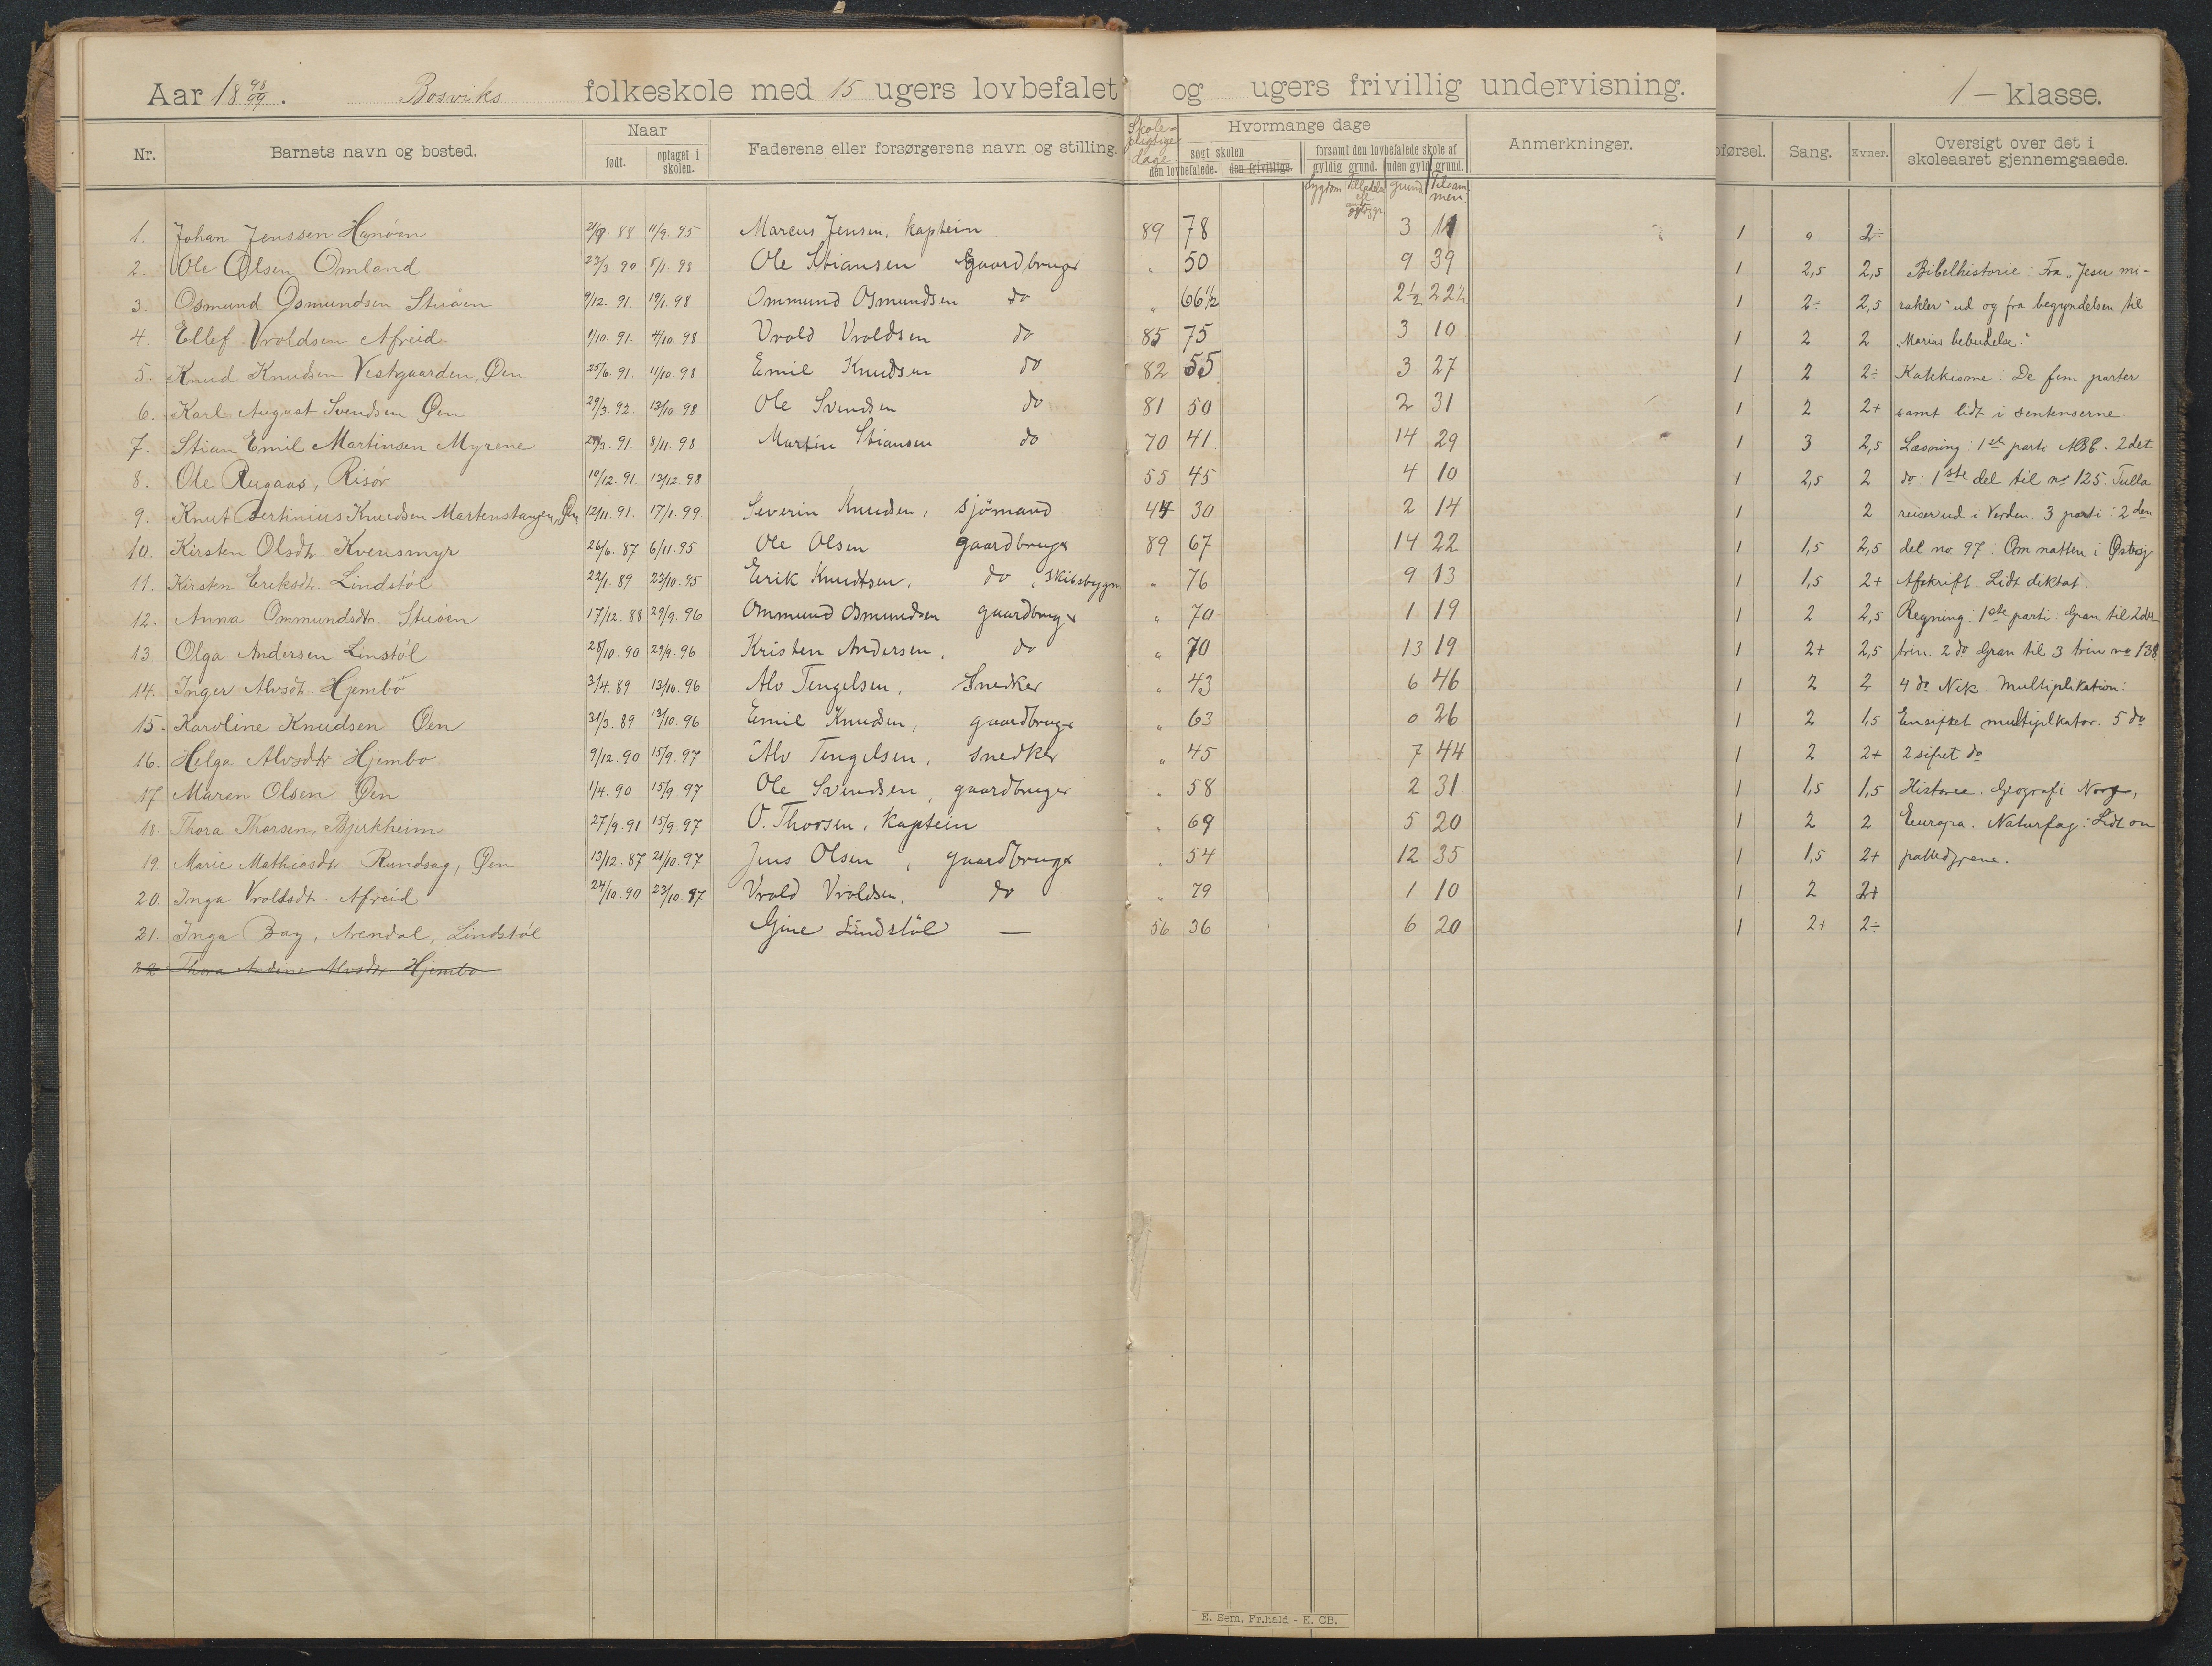 Aar 18 98/99. Bosviks folkeskole med 15 ugers lovbefalet og ugers frivillig undervisning. 1 - klasse.
Nr. Barnets navn og bosted. Naar født. optaget i skolen. Faderens eller forsørgerens navn og stilling. Skolepligtige dage Hvormange dage søgt skolen den lovbefalede. den frivillige. forsømt den lovbefalede skole af gyldig grund. uden gyld. grund. Anmerkninger. pførsel. Sang. Evner. Oversigt over det i skoleaaret gjennemgaaede.
Sygdom grund Tilsammen
1. Johan Jenssen Hanöen 2/9. 88 11/9. 95 Marcus Jensen, kaptein 89 78 3 11 1 " 2÷
2. Ole Olsen Omland 23/3. 90 8/1. 98 Ole Stiansen Gaardbruger " 50 9 39 1 2,5 2,5 Bibelhistorie: Fra „Jesu mi-
3. Osmund Osmundsen Stuöen 9/12. 91. 19/1. 98 Ommund Osmundsen do " 66½ 2½ 22½ 1 2÷ 2,5 rakler" ud og fra begyndelsen til
4. Ellef Vroldsen Afreid. 1/10. 91. 4/10. 98 Vrold Vroldsen do 85 75 3 10 1 2 2 „Marias bebudelse."
5. Knud Knudsen Vestgaarden, Øen 25/6. 91. 11/10. 98 Emil Knudsen do 82 55 3 27 1 2 2÷ Katekisme: De fem parter
6. Karl August Svendsen Øen 29/3. 92. 12/10. 98 Ole Svendsen do 81 50 2 31 1 2 2+ samt lidt i sentenserne.
7. Stian Emil Martinsen Myrene 29/3. 91. 8/11. 98 Martin Stiansen do 70 41 14 29 1 3 2,5 Læsning: 1ste parti ABC. 2det
8. Ole Rugaas, Risör 10/12. 91. 13/12. 98 55 45 4 10 1 2,5 2 do: 1ste del til no 125. Tulla
9. Knut Bertinius Knudsen Martenstangen, Øen 12/11. 91. 17/1. 99. Severin Knudsen, sjömand 44 30 2 14 1 2 reiser ud i Verden. 3 parti: 2den
10. Kirsten Olsdt. Kvensmyr 26/6. 87 6/11. 95 Ole Olsen gaardbruger 89 67 14 22 1 1,5 2,5 del no. 97: Om natten i
11. Kirsten Eriksdt. Lindstöl 22/1. 89 23/10. 95 Erik Knudtsen, do, skibsbygm " 76 9 13 1 1,5 2+ Afskrift. Lidt diktat.
12. Anna Ommundsdt. Stuöen 17/12. 88 29/9. 96 Ommund Osmundsen gaardbruger " 70 1 19 1 2 2,5 Regning: 1ste parti: Gran til 2det
13. Olga Andersen Linstöl 28/10. 90 29/9. 96 Kristen Andersen, do " 70 13 19 1 2+ 2,5 trin. 2 do Gran til 3 trin no 138
14. Inger Alvsdt. Hjembö 3/4. 89 13/10. 96 Alv Tengelsen, Snedker " 43 6 46 1 2 2 4 do Nik. Multiplikation:
15. Karoline Knudsen Øen 31/3. 89 13/10. 96 Emil Knudsen, gaardbruger " 63 0 26 1 2 1,5 Ensifret multiplkator. 5 do
16. Helga Alvsdtr Hjembo 9/12. 90 15/9. 97 Alv Tengelsen, snedker " 45 7 44 1 2 2+ 2 sifret do
17 Maren Olsen Øen 1/4. 90 15/9. 97 Ole Svendsen, gaardbruger " 58 2 31 1 1,5 1,5 Historie. Geografi Norge,
18. Thora Thorsen, Bjerkheim 27/9. 91 15/9. 97 O. Thorsen, kaptein " 69 5 20 1 2 2 Europa. Naturfag: Lidt om
19. Marie Mathiasdt. Rundsag, Øen 13/12. 87 21/10. 97 Jens Olsen, gaardbruger " 54 12 35 1 1,5 2+ pattedyrene.
20. Inga Vroldsdt. Afreid 24/10. 90 23/10. 97 Vrold Vroldsen, do " 79 1 10 1 2 2+
21. Inga Bay, Arendal, Lindstöl Gine Lindstöl — 56 36 6 20 1 2+ 2÷
22 Thora Andine Alvsdtr Hjembo
E. Sem, Fr.hald - E. CB.